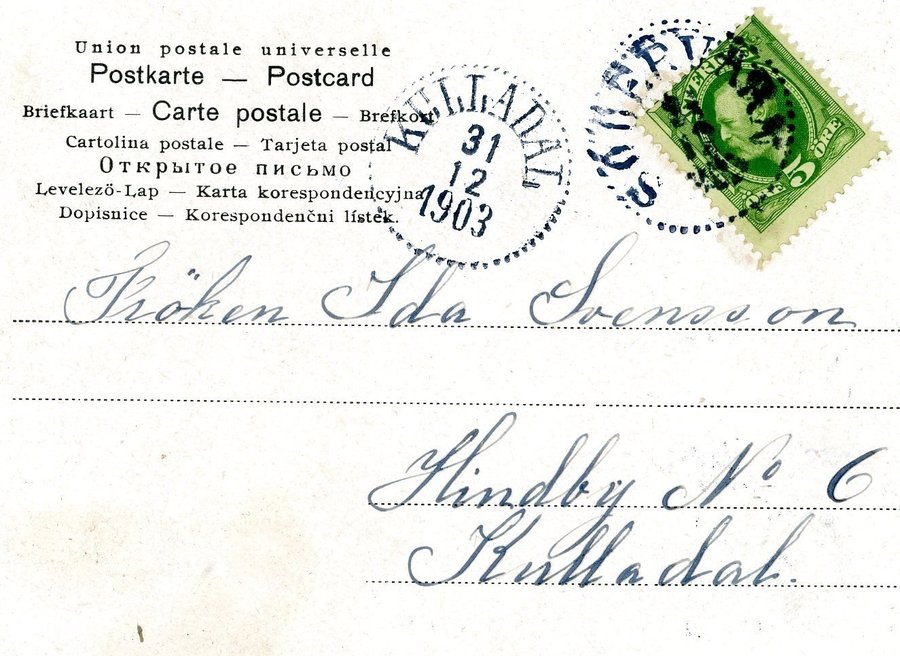 Union postale universelle
Postkarte — Postcard
Briefkaart — Carte postale — Brefkort
Cartolina postale — Tarjeta postal
Открытое письмо
Levelező-Lap — Karta korespondencyjna
Dopisnice — Korespondenčni lístek.
KULLADAL
31
12
1903
SVERIGE
5 ÖRE
Fröken Ida Svensson
Hindby No 6
Kulladal.